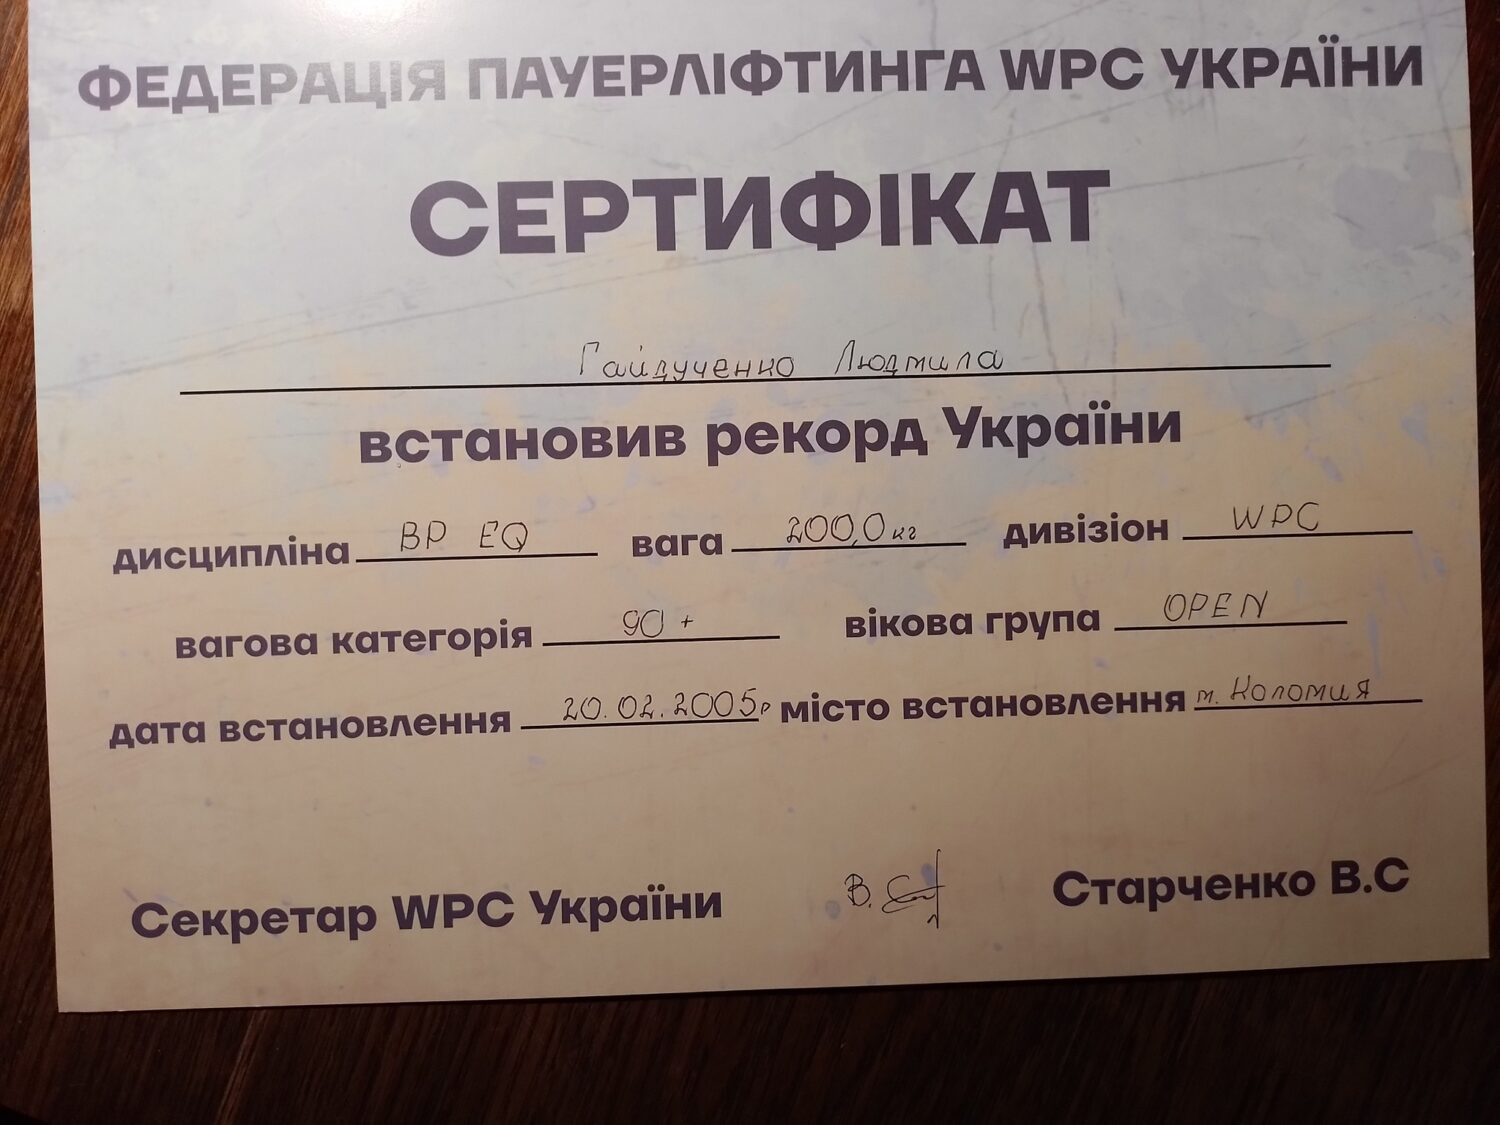 ФЕДЕРАЦІЯ ПАУЕРЛІФТИНГА WPC УКРАЇНИ
СЕРТИФІКАТ
Гайдученко Людмила
встановив рекорд України
дисципліна BP EQ вага 200,0 кг дивізіон WPC
вагова категорія 90+ вікова група OPEN
дата встановлення 20.02.2005р місто встановлення м. Коломия
Секретар WPC України В. Старченко В.С